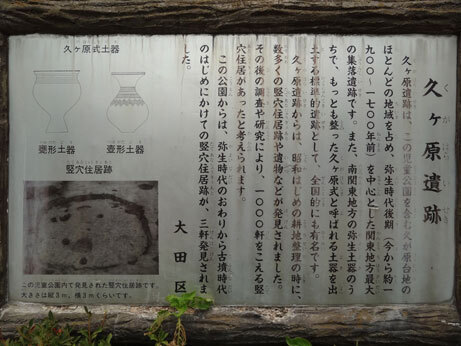 久ヶ原遺跡
久ヶ原遺跡は、この児童公園を含む久が原台地の
ほとんどの地域を占め、弥生時代後期（今から約一
九〇〇～一七〇〇年前）を中心とした関東地方最大
の集落遺跡です。また、南関東地方の弥生土器のう
ちで、もっとも整った久ヶ原式と呼ばれる土器を出
土する標準的遺跡として、全国的にも有名です。
久ヶ原遺跡からは、昭和はじめの耕地整理の時に、
数多くの竪穴住居跡や遺物などが発見されました。
その後の調査や研究により、一〇〇〇軒をこえる竪
穴住居があったと考えられます。
この公園からは、弥生時代のおわりから古墳時代
のはじめにかけての竪穴住居跡が、三軒発見されま
した。
大田区
久ヶ原式土器
甕形土器
壺形土器
竪穴住居跡
この児童公園内で発見された竪穴住居跡です。
大きさは縦3m、横3mくらいです。